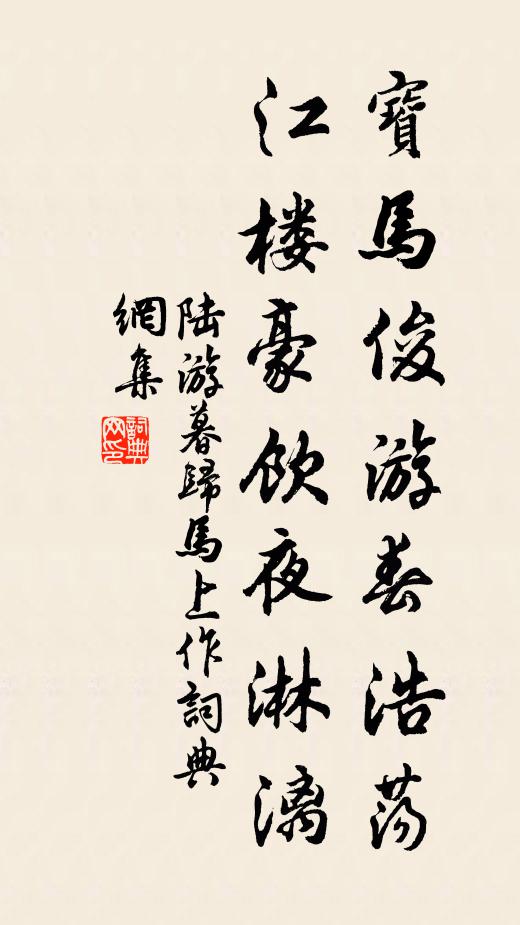 寶馬俊游春浩荡
江楼豪飲夜淋漓
陆游暮歸馬上作詞典
網集
詞典
网印